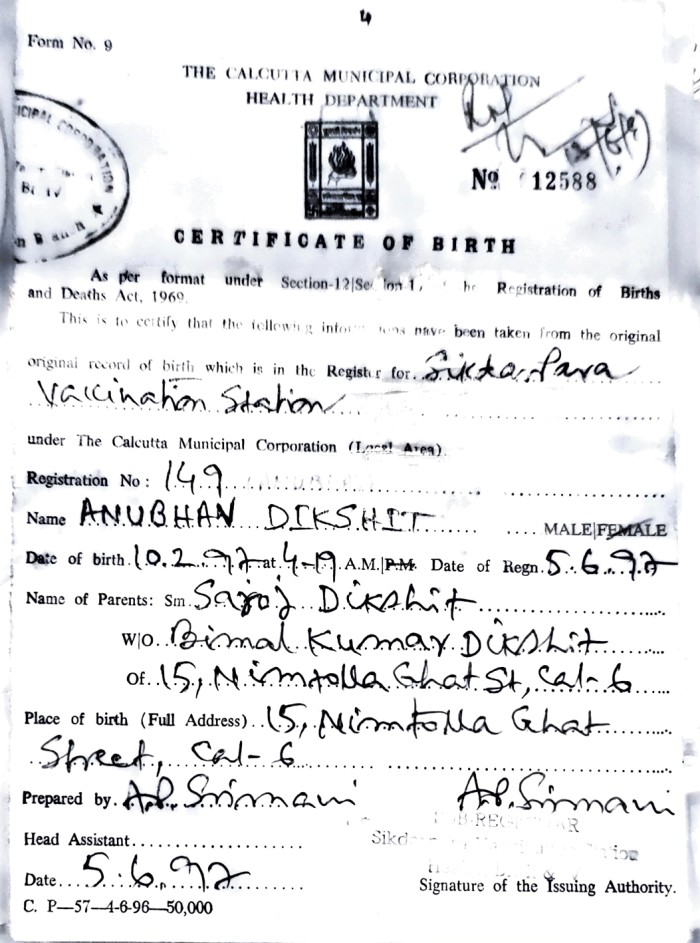 4
Form No. 9
THE CALCUTTA MUNICIPAL CORPORATION
HEALTH DEPARTMENT
No 12588
CERTIFICATE OF BIRTH
As per format under Section-12|Section 1, the Registration of Births
and Deaths Act, 1969.
This is to certify that the following have been taken from the original
original record of birth which is in the Register for. Sikdar Para
Vaccination Station
under The Calcutta Municipal Corporation (Local Area).
Registration No : 149
Name ANUBHAN DIKSHIT MALE|FEMALE
Date of birth 10.2.97 at 4-19 A.M.|P.M. Date of Regn. 5.6.97
Name of Parents: Sm. Saroj Dikshit
W|O. Bimal Kumar Dikshit
Of. 15, Nimtolla Ghat St, Cal-6
Place of birth (Full Address) 15, Nimtolla Ghat
Street, Cal-6
Prepared by. A.P. Srimani A.P. Srimani
SUB-REGISTRAR
Head Assistant
Date 5.6.97
Signature of the Issuing Authority.
C. P—57—4-6-96—50,000